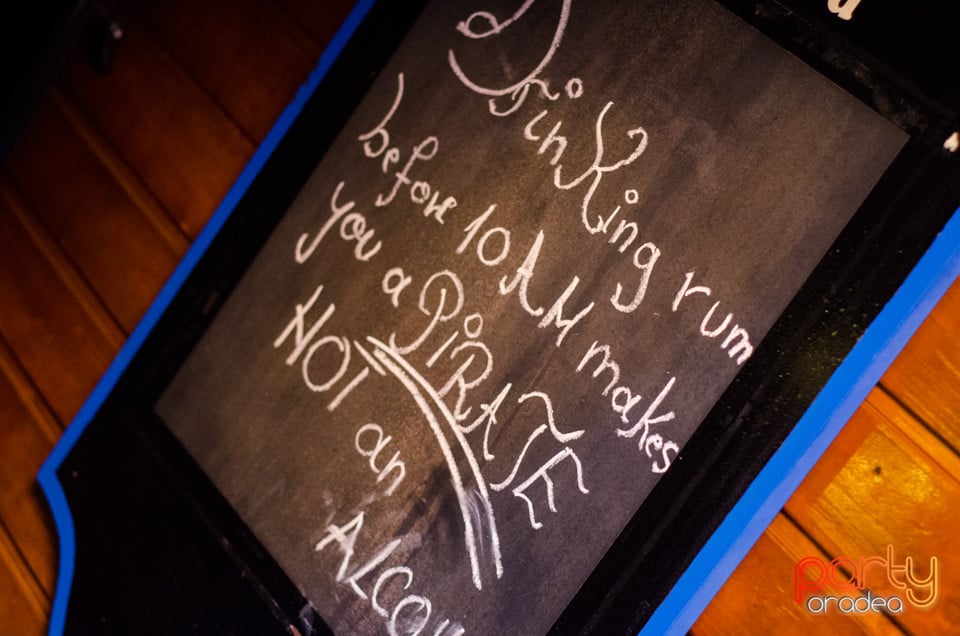 Drinking rum
before 10 AM makes
you a PiRATE
NOT an
party
oradea